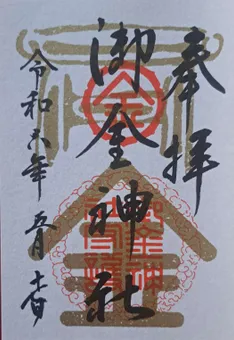 奉拝
御金神社
令和六年 五月 十一日